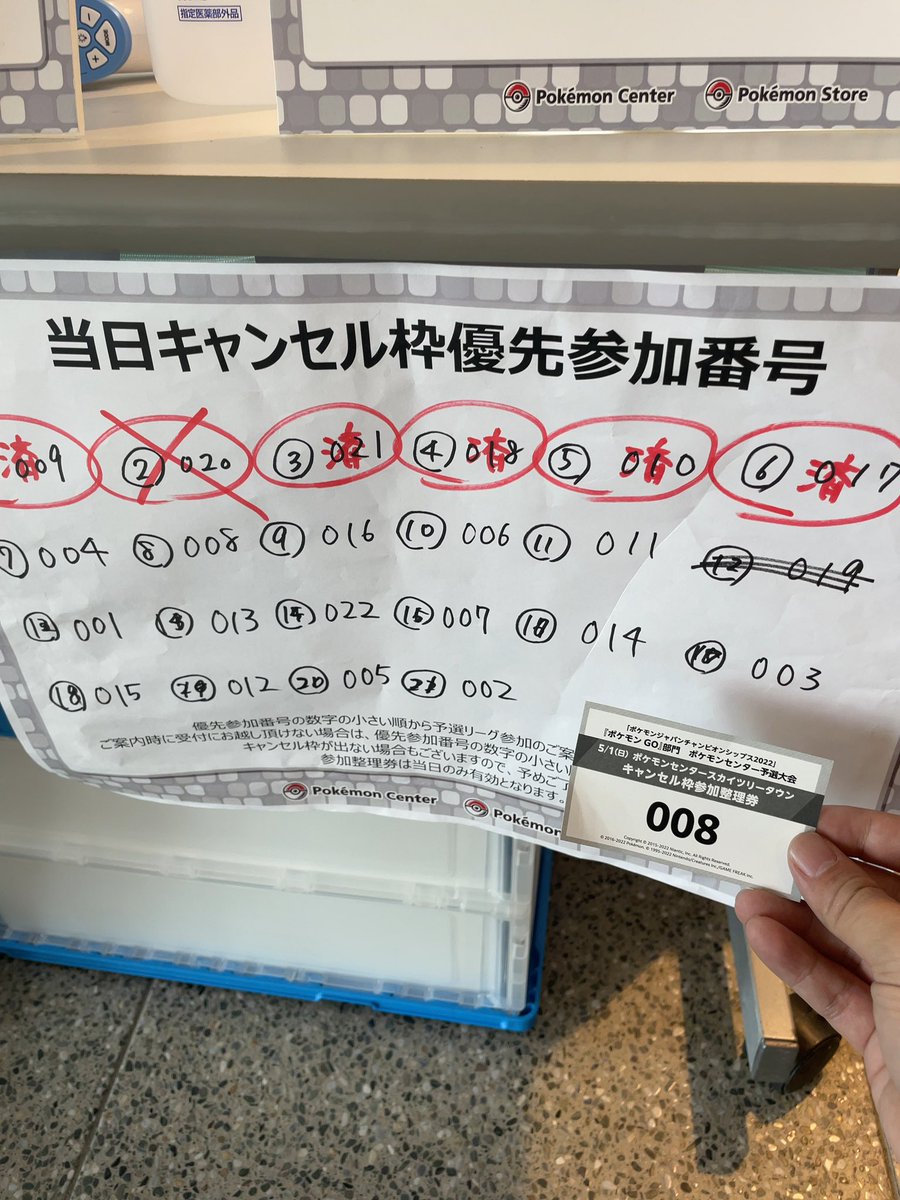 指定医薬部外品
Pokémon Center Pokémon Store
当日キャンセル枠優先参加番号
済 009 ② 020 ③ 021 済 ④ 018 済 ⑤ 010 済 ⑥ 017 済
⑦ 004 ⑧ 008 ⑨ 016 ⑩ 006 ⑪ 011 ⑫ 019
001 013 022 007 014 003
⑱ 015 012 ⑳ 005 ㉑ 002
優先参加番号の数字の小さい順から予選リーグ参加のご案
ご案内時に受付にお越し頂けない場合は、優先参加番号の数字の小さい
キャンセル枠が出ない場合もございますので、予めご了
参加整理券は当日のみ有効となります。
Pokémon Center Pokémon
「ポケモンジャパンチャンピオンシップス2022」
『ポケモン GO』部門 ポケモンセンター予選大会
5/1(日) ポケモンセンタースカイツリータウン
キャンセル枠参加整理券
008
Copyright © 2015-2022 Niantic, Inc. All Rights Reserved.
© 2016-2022 Pokémon. © 1995-2022 Nintendo/Creatures Inc./GAME FREAK inc.